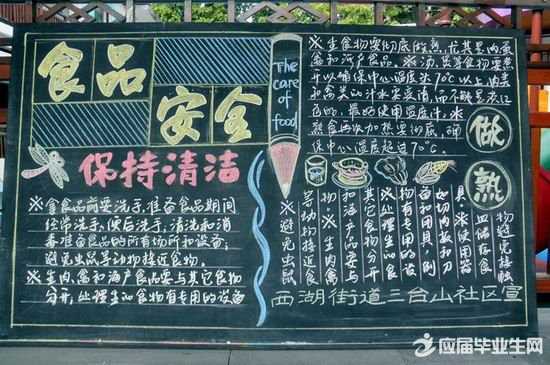 食品
安全
保持清洁
※拿食品前要洗手,准备食品期间
经常洗手,便后洗手,清洗和消
毒准备食品的所有场所和设备;
避免虫鼠等动物接近食物。
※生肉、禽和海产食品要与其它食物
分开,处理生的食物有专用的设备
The
care
of
food
※生食物要彻底做熟,尤其是肉蛋
禽和海产食品。※汤、煲等食物要煮
开以确保中心温度达70℃以上,肉类
和禽类的汁水要变清,而不能是淡红
色的,最好使用温度计,※
熟食再次加热要彻底,确
保中心温度超过70℃。
做
熟
物避免接触
皿储存食
具;※使用器
如切肉板和刀
备和用具,例
物有专用的设
※处理生的食
其它食物分开
和海产品要与
物※生肉禽
等动物接近食
※避免虫鼠
西湖街道三台山社区宣
应届毕业生网